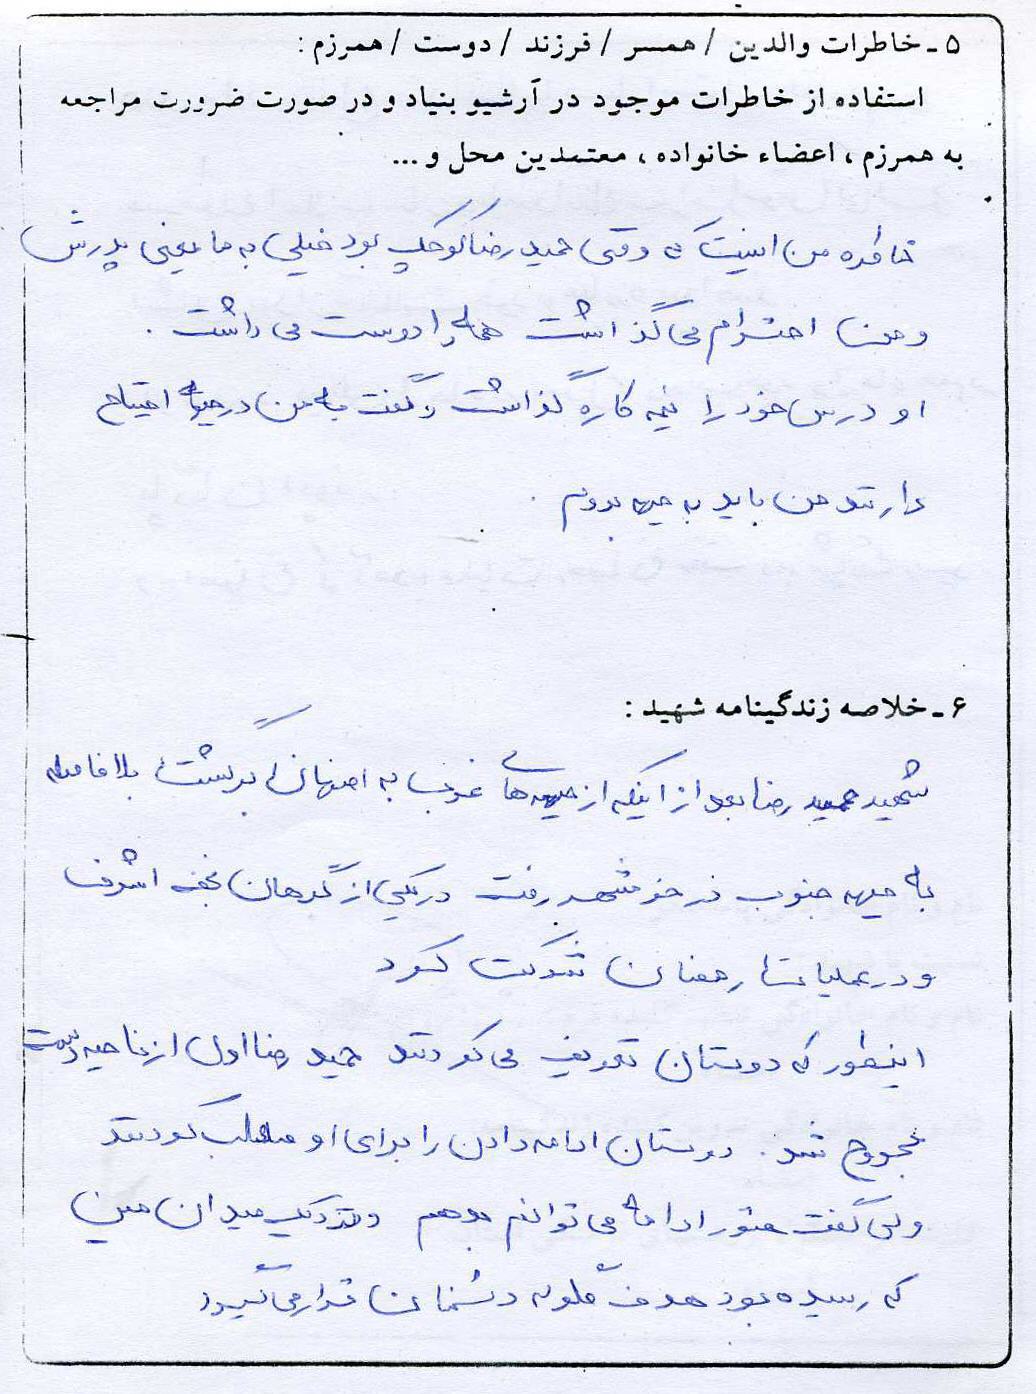 ۵ ـ خاطرات والدین / همسر / فرزند / دوست / همرزم :
استفاده از خاطرات موجود در آرشیو بنیاد و در صورت ضرورت مراجعه
به همرزم ، اعضاء خانواده ، معتمدین محل و ...
خاطره من اینست که وقتی حمید رضا کوچک بود خیلی به ما یعنی پدرش
و من احترام می گذاشت همه را دوست می داشت .
او درس خود را نیمه کاره گذاشت و گفت به من در جبهه احتیاج
دارند من باید به جبهه بروم .
۶ ـ خلاصه زندگینامه شهید :
شهید حمید رضا بعد از اینکه از جبهه های غرب به اصفهان برگشت بلافاصله
به جبهه جنوب در خرمشهر رفت در یکی از گردهان نجف اشرف
و در عملیات رمضان شرکت کرد
اینطور که دوستان تعریف می کردند حمید رضا اول از ناحیه دست
مجروح شد . دوستان ادامه دادن را برای او کردند
ولی گفت هنوز ادامه می توانم بدهم و نزدیک میدان مین
که رسیده بود هدف گلوله دشمنان قرار می گیرد